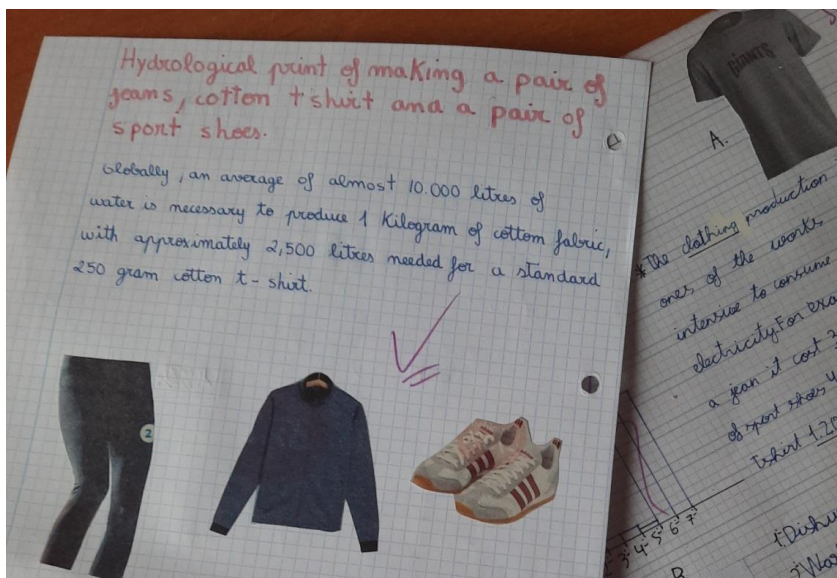 Hydrological print of making a pair of
jeans, cotton t shirt and a pair of
sport shoes.
Globally, an average of almost 10.000 litres of
water is necessary to produce 1 Kilogram of cottom fabric,
with approximately 2,500 litres needed for a standard
250 gram cotton t-shirt.
2
GIANTS
A.
*The clothing production
ones of the works
intensive to consume
electricity. For exa
a jean it cost
of sport shoes 4
Tshirt 1.20
3 4 5 6 7
B
1. Dishw
2. Was